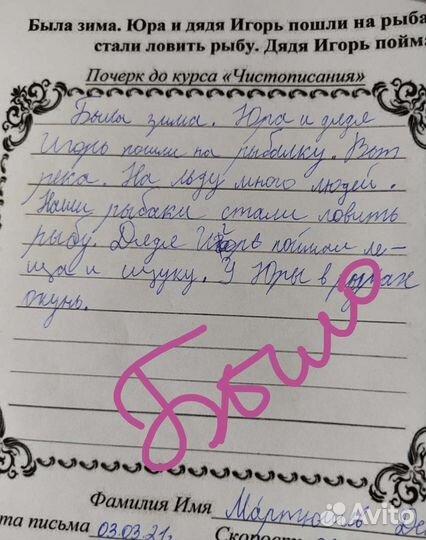 Была зима. Юра и дядя Игорь пошли на рыба
стали ловить рыбу. Дядя Игорь пойма
Почерк до курса «Чистописания»
Была зима. Юра и дядя
Игорь пошли на рыбалку. Вот
река. На льду много людей.
Наши рыбаки стали ловить
рыбу. Дядя Игорь поймал ле-
ща и щуку. У Юры в руках
окунь.
Было
Фамилия Имя
та письма 03.03.21г. Скорость
Avito